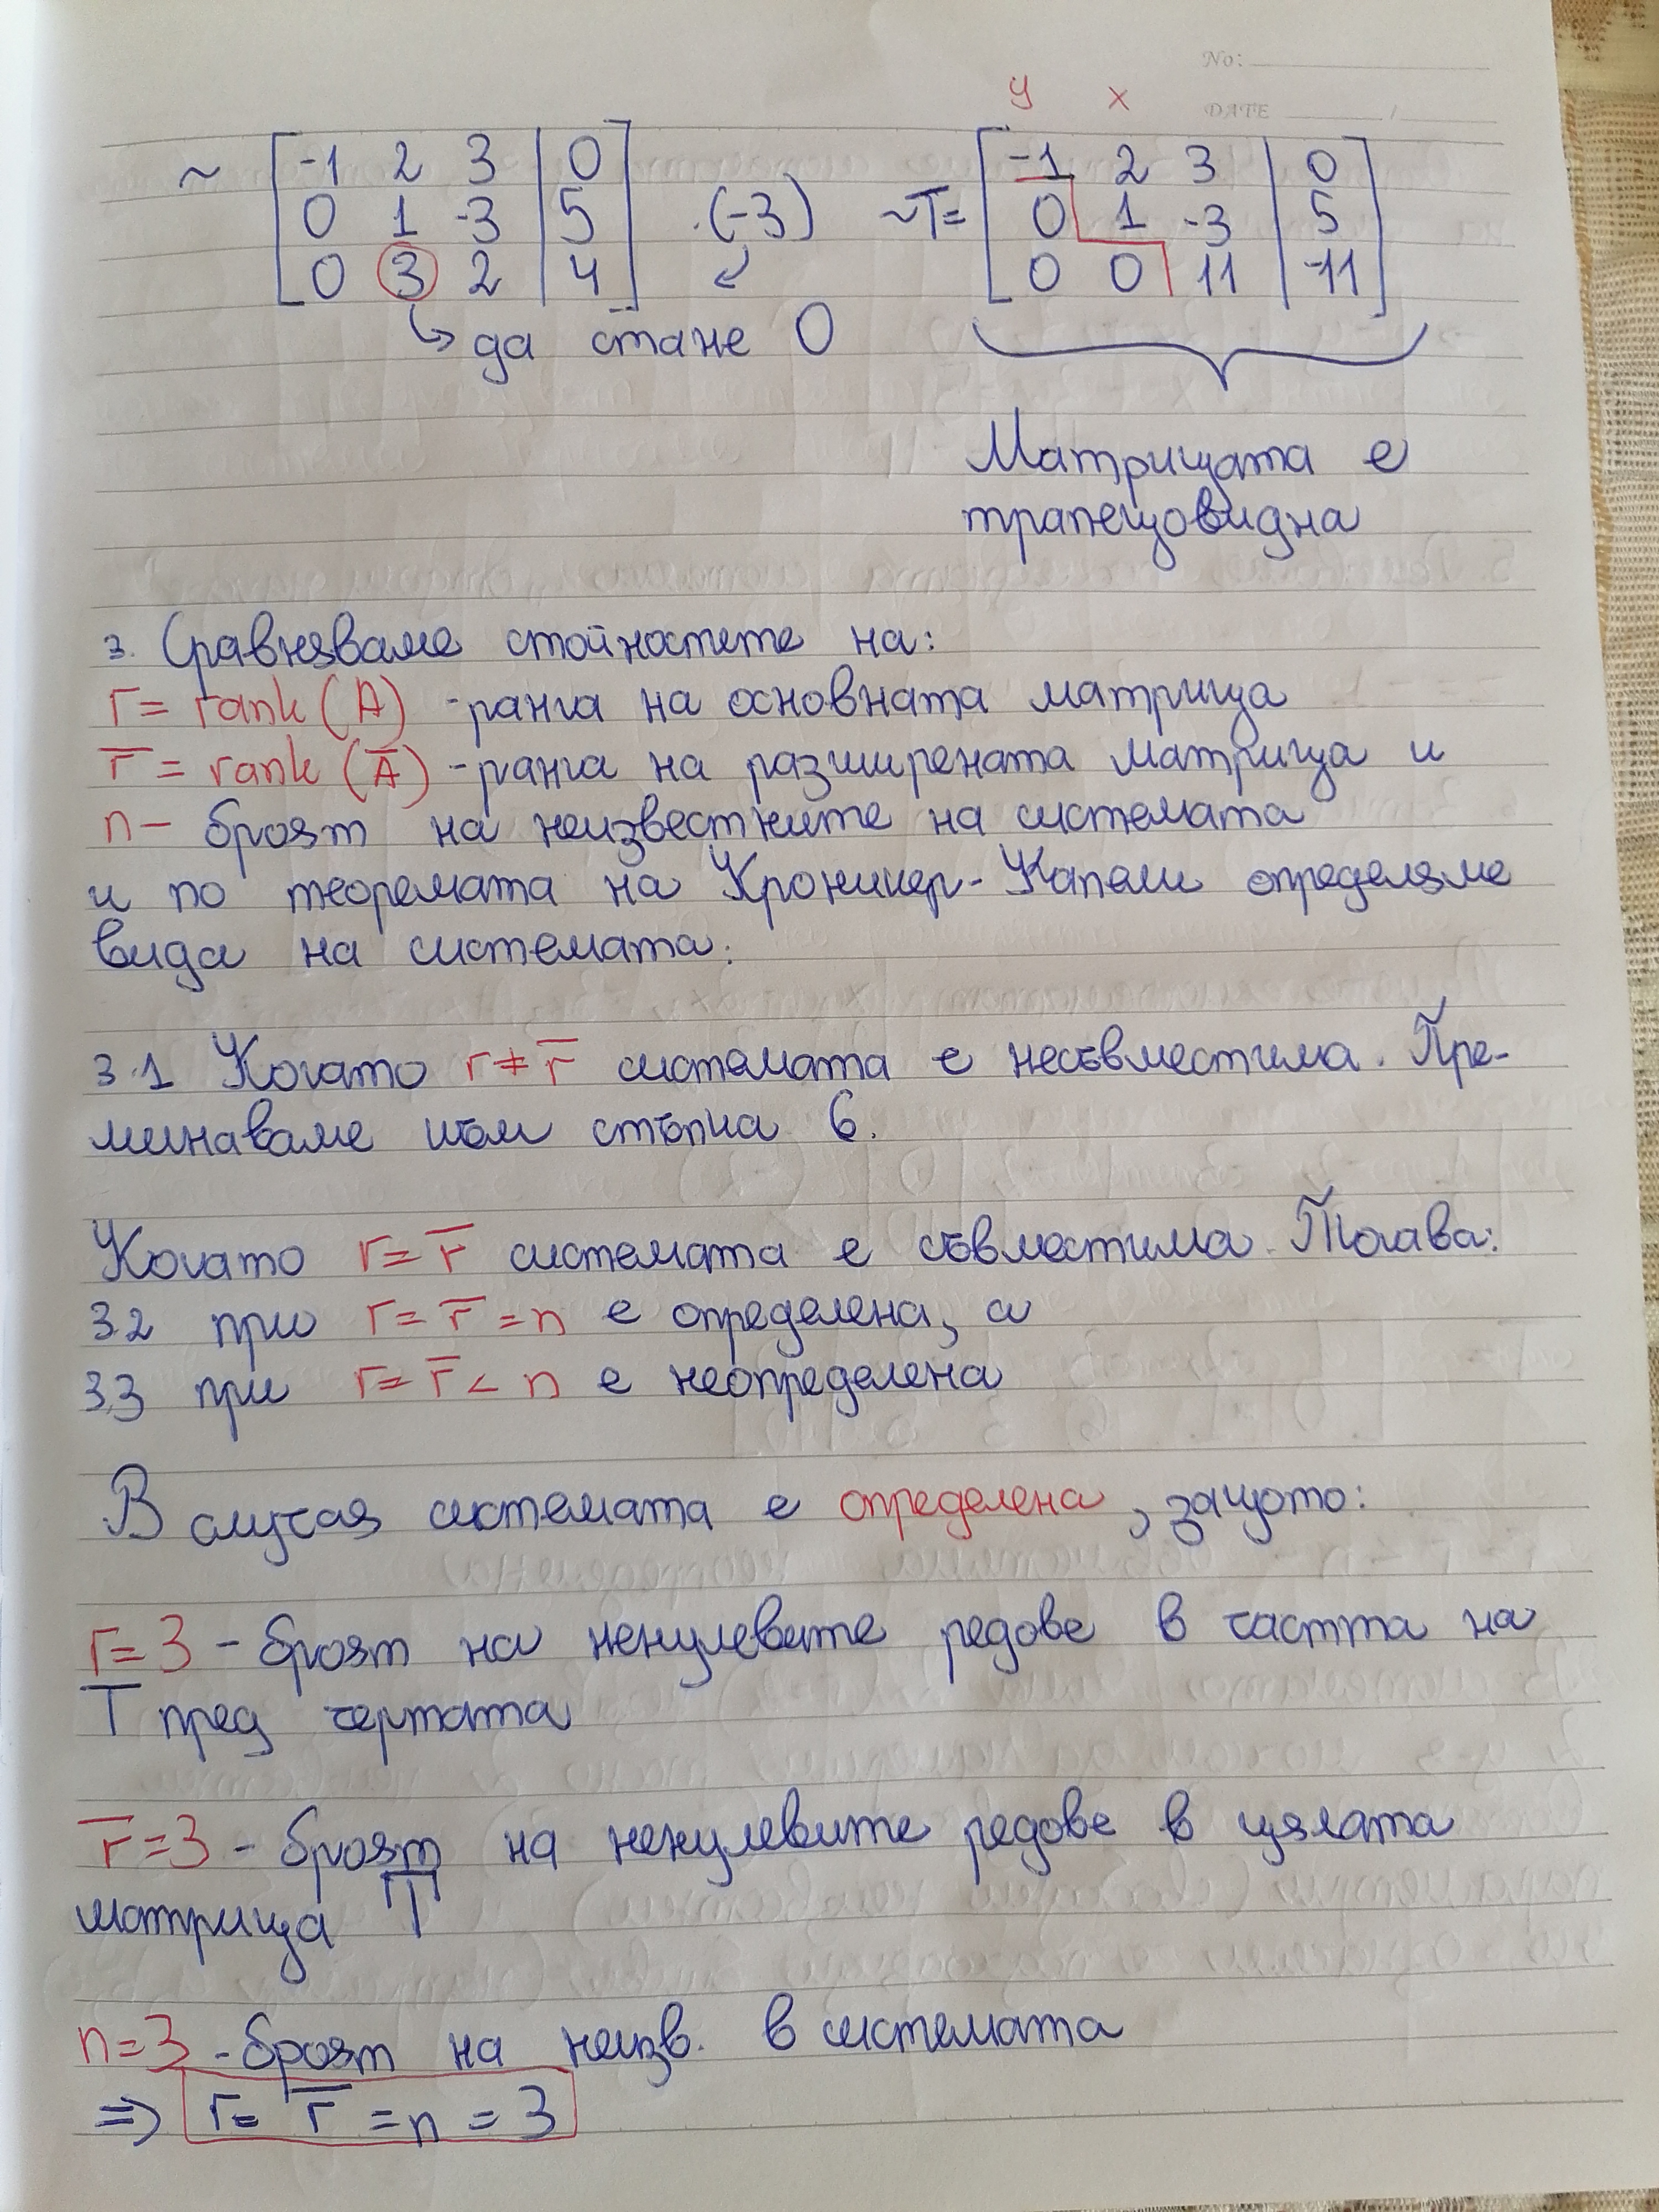 No:
DATE /
y x
~ [ -1 2 3 | 0 ]
[ 0 1 -3 | 5 ] .(-3) ~T=
[ 0 3 2 | 4 ]
[ -1 2 3 | 0 ]
[ 0 1 -3 | 5 ]
[ 0 0 11 | -11 ]
↳ да стане 0
Матрицата е
трапецовидна
3. Сравняваме стойностете на:
r = rank (A) - ранга на основната матрица
r̅ = rank (A̅) - ранга на разширената матрица и
n - броят на неизвестните на системата
и по теоремата на Кроникер-Капели определяме
вида на системата:
3.1 Когато r ≠ r̅ системата е несъвместима. Пре-
минаваме към стъпка 6.
Когато r = r̅ системата е съвместима. Тогава:
3.2 при r = r̅ = n е определена, а
3.3 при r = r̅ < n е неопределена
В случая системата е определена, защото:
r = 3 - броят на ненулевите редове в частта на
T пред чертата
r̅ = 3 - броят на ненулевите редове в цялата
матрица T
n = 3 - броят на неизв. в системата
⇒ r = r̅ = n = 3